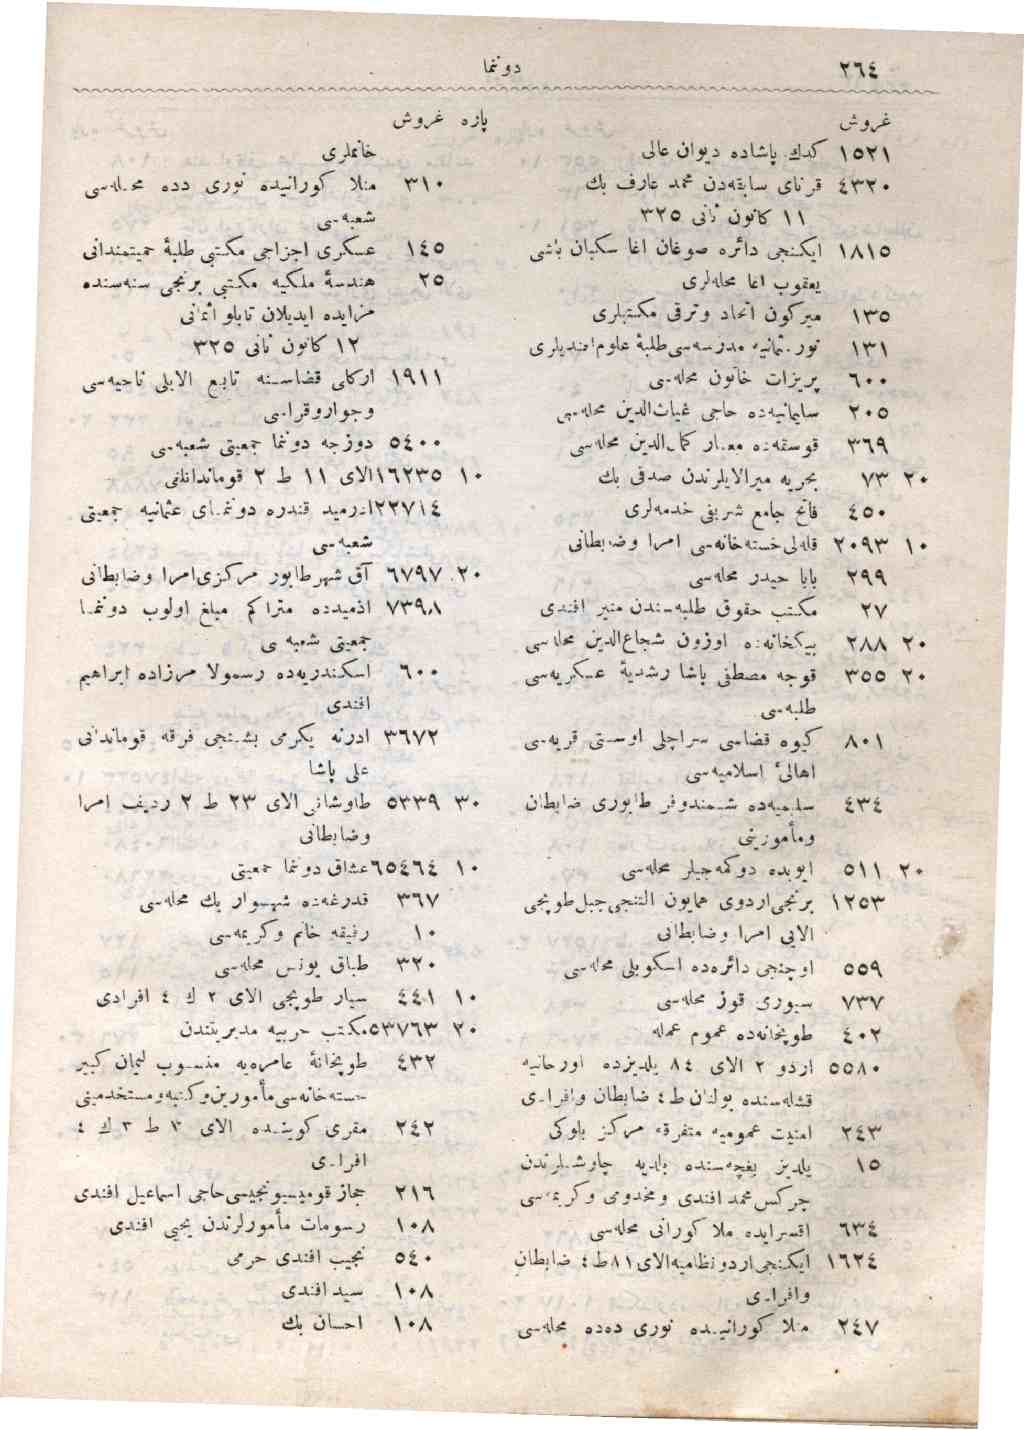 ٢٦٤
دونما
غروش
١٥٢١ كدك پاشاده ديوان عالى
٤٣٢٠ قرناى سابقه‌دن محمد عارف بك
١١ كانون ثانى ٣٢٥
١٨١٥ ايكنجى دائره صوغان اغا سكبان باشى
يعقوب اغا محله‌لرى
١٣٥ ميركون اتحاد وترقى مكتبلرى
١٣١ نور عثمانيه مدرسه‌سى طلبۀ علوم افنديلرى
٦٠٠ پريزات خاتون محله‌سى
٢٠٥ سليمانيه‌ده حاجى غياث‌الدين محله‌سى
٣٦٩ قوسقه‌ده معمار كمال‌الدين محله‌سى
٢٠ ٧٣ بحريه ميرالايلرندن صدقى بك
٤٥٠ فاتح جامع شريفى خدمه‌لرى
١٠ ٢٠٩٣ قله‌لى خسته‌خانه‌سى امرا وضابطانى
٢٩٩ بابا حيدر محله‌سى
٢٧ مكتب حقوق طلبه‌سندن منير افندى
٢٠ ٢٨٨ بيكخانه‌ده اوزون شجاع‌الدين محله‌سى
٢٠ ٣٥٥ قوجه مصطفى پاشا رشديۀ عسكريه‌سى
طلبه‌سى
٨٠١ كيوه قضاسى سراچلى اوستى قريه‌سى
اهالئ اسلاميه‌سى
٤٣٤ سليميه‌ده شمندوفر طابورى ضابطان
ومأمورينى
٢٠ ٥١١ ايوبده دوكمه‌جيلر محله‌سى
١٢٥٣ برنجى اردوى همايون التنجى جبل طوپجى
الايى امرا وضابطانى
٥٥٩ اوچنجى دائره‌ده اسكوبلى محله‌سى
٧٣٧ سيورى قوز محله‌سى
٤٠٢ طوپخانه‌ده عموم عمله
٥٥٨٠ اردو ٢ الاى ٨٤ يلديزده اورخانيه
قشله‌سنده بولنان ط ٤ ضابطان وافرادى
٢٤٣ امنيت عموميه متفرقه مركز بلوكى
١٥ يلديز بغچه‌سنده بلديه چاوشلرندن
چركس محمد افندى و مخدومى وكريمه‌سى
٦٣٤ اقسرايده ملا كورانى محله‌سى
١٦٢٤ ايكنجى اردو نظاميه الاى ٨١ ط ٤ ضابطان
وافرادى
٢٤٧ منلا كورانيده نورى دده محله‌سى
پاره غروش
خانملرى
٣١٠ منلا كورانيده نورى دده محله‌سى
شعبه‌سى
١٤٥ عسكرى اجزاجى مكتبى طلبۀ حميتمندانى
٢٥ هندسۀ ملكيه مكتبى برنجى سنه‌سنده
مزايده ايديلان تابلو اثمانى
١٢ كانون ثانى ٣٢٥
١٩١١ اركلى قضاسنه تابع الاپلى ناحيه‌سى
وجوار وقراسى
٥٤٠٠ دوزجه دونما جمعيتى شعبه‌سى
١٠ ١٦٢٣٥ الاى ١١ ط ٢ قوماندانلغى
٢٢٧١٤ ازميد قندره دونماى عثمانيه جمعيتى
شعبه‌سى
٢٠ ٦٧٩٧ آق شهر طابور مركزى امرا وضابطانى
٧٣٩٨ ازميدده متراكم مبلغ اولوب دونما
جمعيتى شعبه‌سى
٦٠٠ اسكندريه‌ده رسمولا مرزاده ابراهيم
افندى
٣٦٧٢ ادرنه يكرمى بشنجى فرقه قوماندانى
على پاشا
٣٠ ٥٣٣٩ طاوشانلى الاى ٢٣ ط ٢ رديف امرا
وضابطانى
١٠ ٦٥٤٦٤ عشاق دونما جمعيتى
٣٦٧ قدرغه‌ده شهسوار بك محله‌سى
١٠ رفيقه خانم وكريمه‌سى
٣٢٠ طباق يونس محله‌سى
١٠ ٤٤١ سيار طوپجى الاى ٢ ك ٤ افرادى
٢٠ ٥٣٧٦٣ مكتب حربيه مديريتندن
٤٣٢ طوپخانۀ عامره‌يه منسوب ليمان كبير
خسته‌خانه‌سى مأمورين وكتبه ومستخدمينى
٢٤٢ مقرى كوينده الاى ٧ ط ٣ ك ٤
افرادى
٢١٦ حجاز قوميسيونجيسى حاجى اسماعيل افندى
١٠٨ رسومات مأمورلرندن يحيى افندى
٥٤٠ نجيب افندى حرمى
١٠٨ سيد افندى
١٠٨ احسان بك